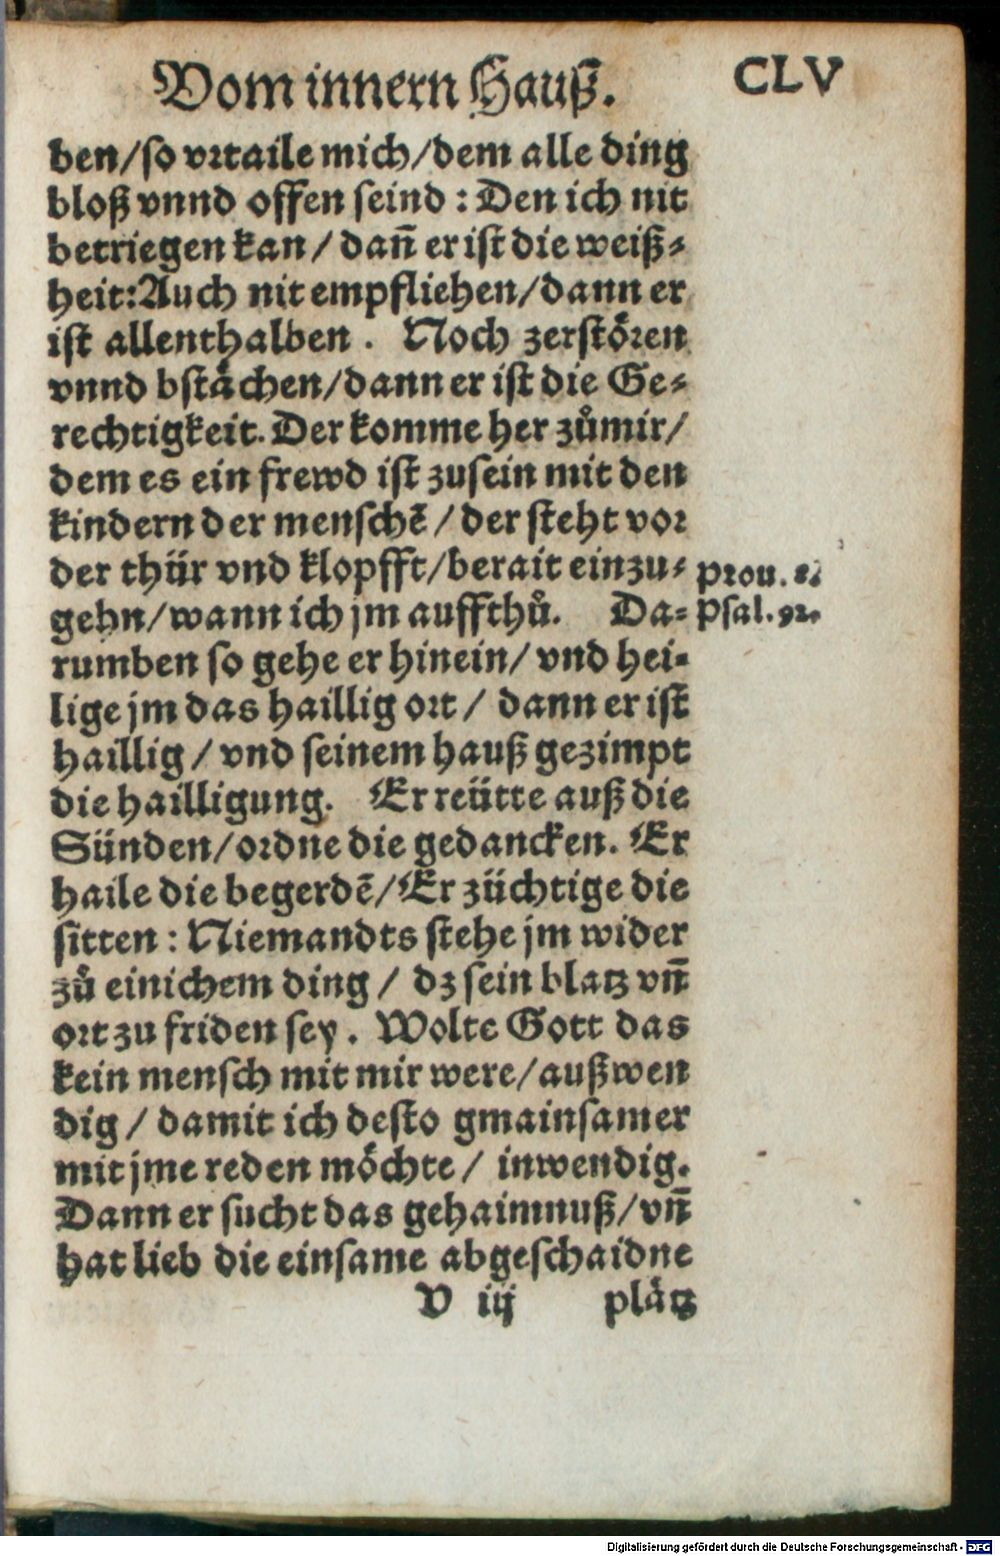 Vom innern Hauß. CLV
ben/so vrtaile mich/dem alle ding
bloß vnnd offen seind : Den ich nit
betriegen kan / dañ er ist die weiß⸗
heit: Auch nit empfliehen/dann er
ist allenthalben . Noch zerstoͤren
vnnd bstaͤchen/dann er ist die Ge⸗
rechtigkeit. Der komme her zuͦ mir/
dem es ein frewd ist zusein mit den
kindern der menschẽ / der steht vor
der thür vnd klopfft/berait einzu⸗ prou.
gehn/wann ich jm auffthuͦ. Da⸗ Psal. 92.
rumben so gehe er hinein/ vnd hei⸗
lige jm das haillig ort / dann er ist
haillig / vnd seinem hauß gezimpt
die hailligung. Er reütte auß die
Sünden/ordne die gedancken. Er
haile die begerdẽ/Er züchtige die
sitten : Niemandts stehe jm wider
zuͦ einichem ding / dz sein blatz vñ
ort zu friden sey . Wolte Gott das
kein mensch mit mir were/außwen
dig / damit ich desto gmainsamer
mit jme reden moͤchte / inwendig.
Dann er sucht das gehaimnuß/vñ
hat lieb die einsame abgeschaidne
V iij plaͤtz
Digitalisierung gefördert durch die Deutsche Forschungsgemeinschaft - DFG